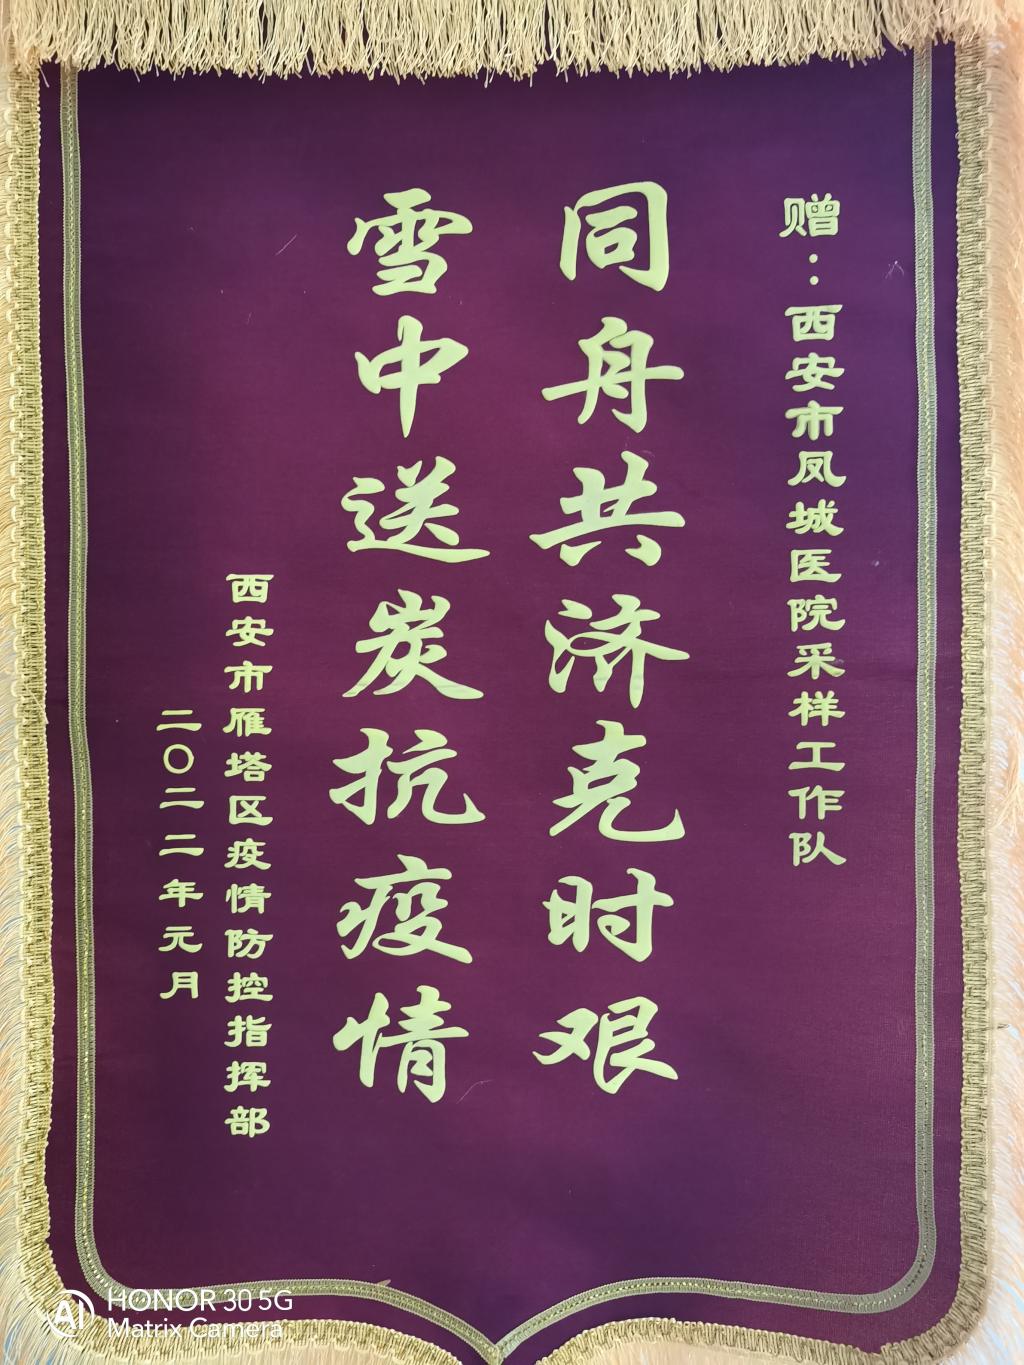 赠：西安市凤城医院采样工作队
同舟共济克时艰
雪中送炭抗疫情
西安市雁塔区疫情防控指挥部
二〇二二年元月
AI
HONOR 30 5G
Matrix Camera